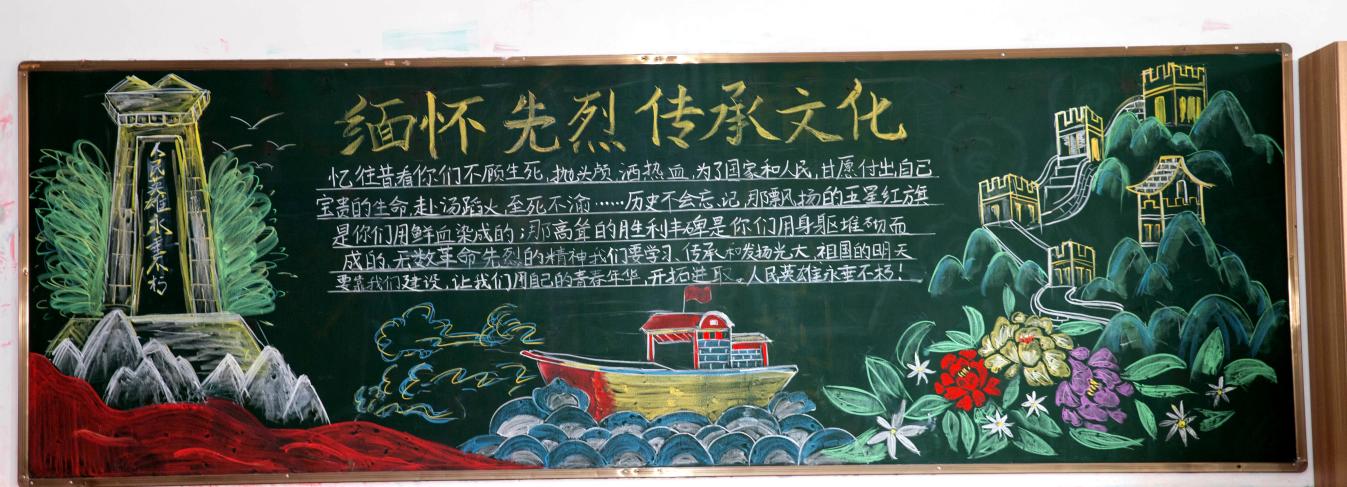 缅怀先烈传承文化
人民英雄永垂不朽
忆往昔看你们不顾生死,抛头颅,洒热血,为了国家和人民,甘愿付出自己
宝贵的生命,赴汤蹈火,至死不渝……历史不会忘记,那飘扬的五星红旗
是你们用鲜血染成的;那高耸的胜利丰碑是你们用身躯堆砌而
成的,无数革命先烈的精神我们要学习,传承和发扬光大,祖国的明天
要靠我们建设,让我们用自己的青春年华,开拓进取。人民英雄永垂不朽!